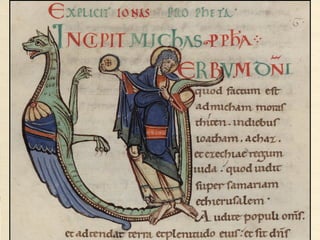 EXPLICIT IONAS PROPHETA
INCIPIT MICHAS PPHA
ERBUM DNI
quod factum est
ad micham moras
thiten. indiebus
ioatham. achaz.
et ezechiae regum
iuda. quod uidit
super samariam
et hierusalem.
Audite populi oms.
et adtendat terra et plenitudo eius. et sit dns